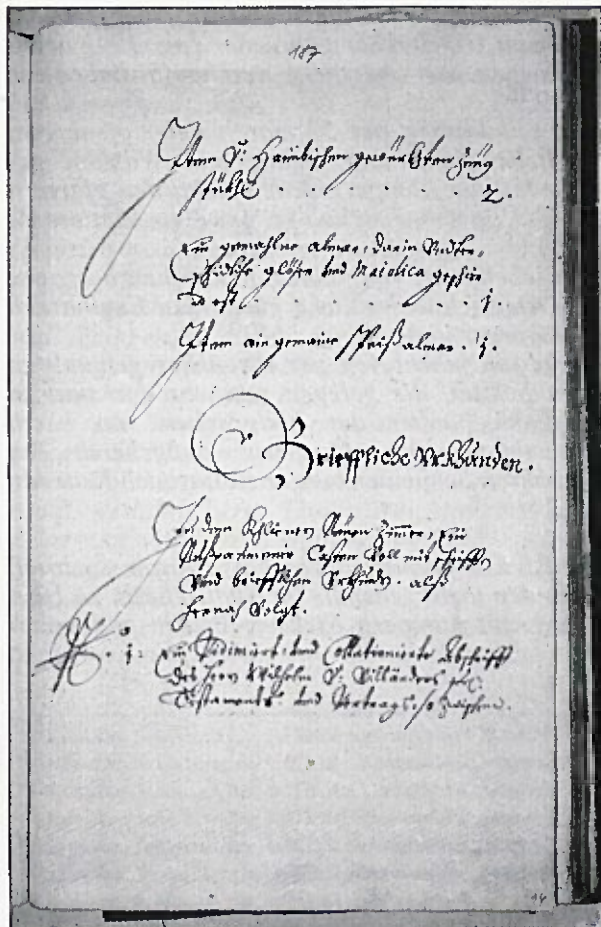 187
Item V: Hainbischen gewürkhten Zeüg
stükhl . . . . . . 2.
Ein gemahlne almar, darin Vndter,
schidliche gläser und Maiolica geschir
id est . . . . . . 1.
Item ein gemaine speißalmar . 1.
Brieffliche Vrkhünden.
In dem Khleinen Neuen Zimmer, Ein
Casten Voll mit schrifften
Vnd briefflichen Vrkhünden. alß
hernach Volgt.
. 1. Ein Vidimiert. und Collationierte Abschrifft
des Herrn Wilhelm V: Villanders sel:
Testaments und Vertrags, so zwischen.